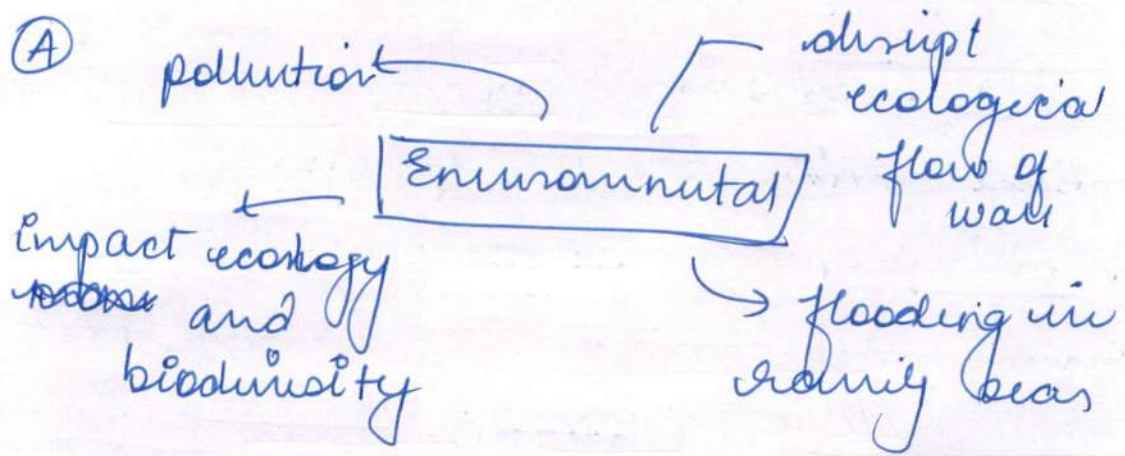 Ⓐ
pollution
disrupt
ecological
flow of
water
Environmental
impact ecology
and
biodiversity
flooding in
rainy